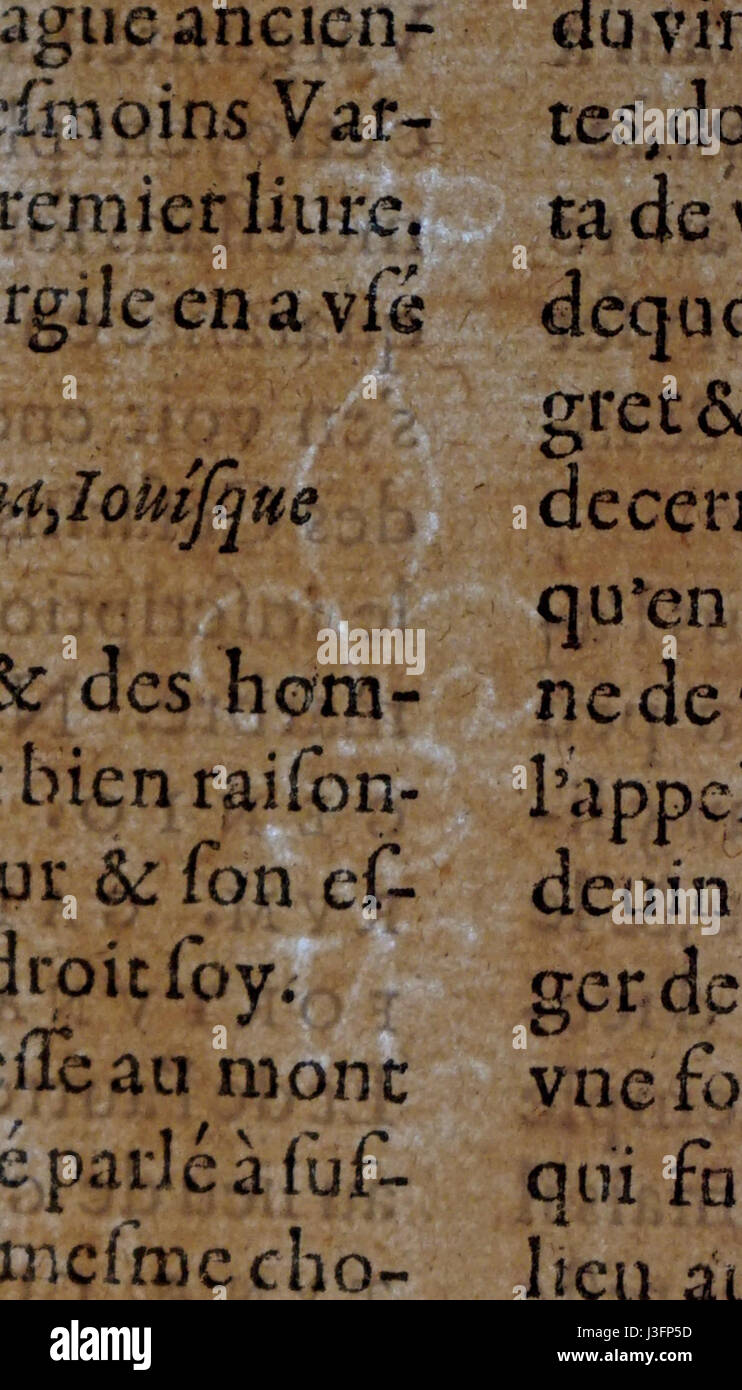 ague ancien-
eſmoins Var-
remier liure.
rgile en a vſé
na, Iouíſque
& des hom-
bien raiſon-
ur & ſon eſ-
droit ſoy.
eſſe au mont
é parlé à ſuſ-
meſme cho-
du vin
tes, do
ta de v
dequo
gret &
decern
qu'en
ne de
l'appel
deuin
ger de
vne fo
qui fu
lieu au
alamy
Image ID: J3FP5D
www.alamy.com